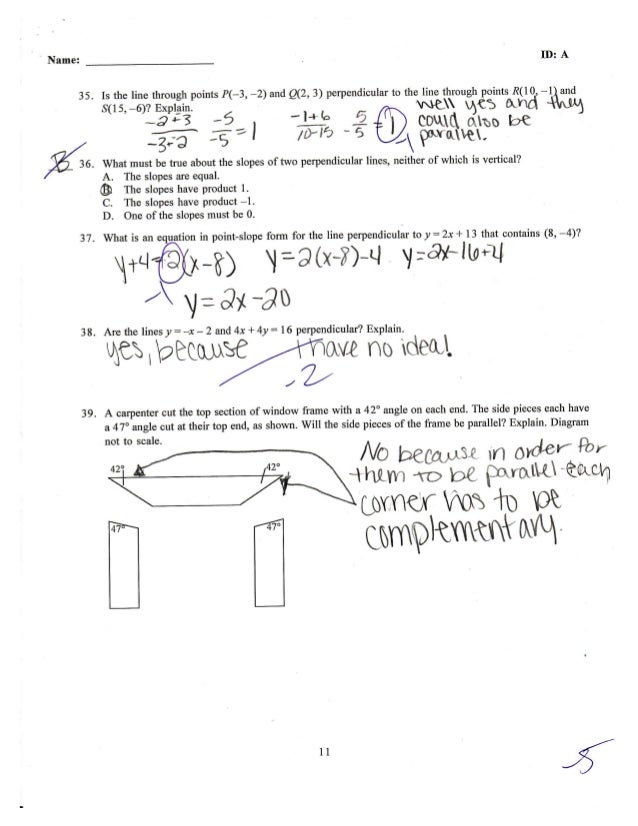 Name: ____________________
ID: A
35. Is the line through points P(−3, −2) and Q(2, 3) perpendicular to the line through points R(10, −1) and
S(15, −6)? Explain.
well yes and they
could also be
parallel.
-2-3 / -3-2  -5 / -5 = 1  -1+6 / 10-15  5 / -5 = 1
-1
B
36. What must be true about the slopes of two perpendicular lines, neither of which is vertical?
A. The slopes are equal.
B. The slopes have product 1.
C. The slopes have product −1.
D. One of the slopes must be 0.
37. What is an equation in point-slope form for the line perpendicular to y = 2x + 13 that contains (8, −4)?
y+4=2(x-8)  y=2(x-8)-4  y=2x-16+4
-1
y=2x-20
38. Are the lines y = −x − 2 and 4x + 4y = 16 perpendicular? Explain.
yes, because I have no idea!
-2
39. A carpenter cut the top section of window frame with a 42° angle on each end. The side pieces each have
a 47° angle cut at their top end, as shown. Will the side pieces of the frame be parallel? Explain. Diagram
not to scale.
42° 42°
47° 47°
No because in order for
them to be parallel each
corner has to be
complementary.
11
5